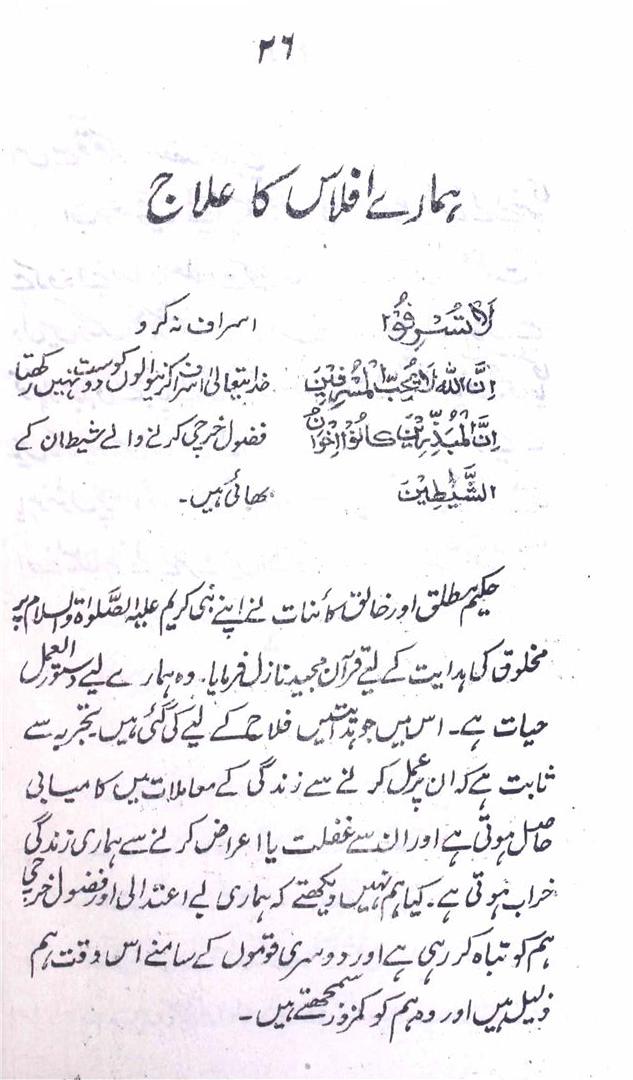 ۲۶
ہمارے افلاس کا علاج
لَا تُسْرِفُوْا اسراف نہ کرو
اِنَّ اللہَ لَا یُحِبُّ الْمُسْرِفِیْنَ خدا یتعالیٰ اسراف کرنیوالوں کو دوست نہیں رکھتا
اِنَّ الْمُبَذِّرِیْنَ کَانُوْا اِخْوَانَ فضول خرچی کرنے والے شیطان کے
الشَّیٰطِیْنَ بھائی ہیں۔
حکیم مطلق اور خالق کائنات نے اپنے نبی کریم علیہ الصَّلوٰۃ والسلام پر
مخلوق کی ہدایت کے لیے قرآن مجید نازل فرمایا۔ وہ ہمارے لیے دستور العمل
حیات ہے۔ اس میں جو ہدایتیں فلاح کے لیے کی گئی ہیں تجربہ سے
ثابت ہے کہ ان پر عمل کرنے سے زندگی کے معاملات میں کامیابی
حاصل ہوتی ہے اور ان سے غفلت یا اعراض کرنے سے ہماری زندگی
خراب ہوتی ہے۔ کیا ہم نہیں دیکھتے کہ ہماری بے اعتدالی اور فضول خرچی
ہم کو تباہ کر رہی ہے اور دوسری قوموں کے سامنے اس وقت ہم
ذلیل ہیں اور وہ ہم کو کمزور سمجھتے ہیں۔